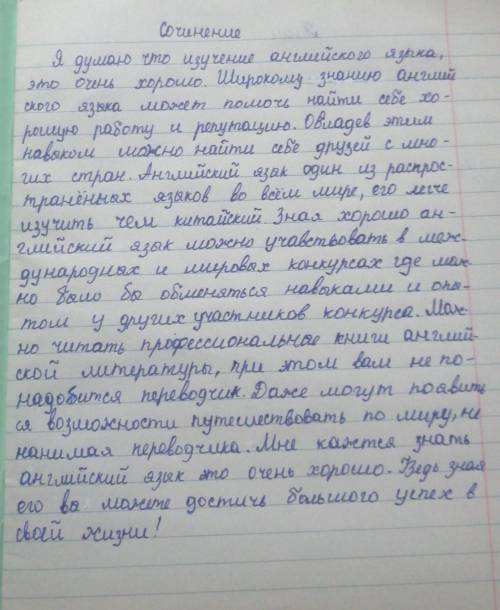 Сочинение
Я думаю что изучение английского языка,
это очень хорошо. Широкому знанию англий
ского языка может помочь найти себе хо-
рошую работу и репутацию. Овладев этим
навыком можно найти себе друзей с мно-
гих стран. Английский язык один из распрос-
транённых языков во всём мире, его легче
изучить чем китайский. Зная хорошо ан-
глийский язык можно учавствовать в меж-
дународных и мировых конкурсах где мож-
но было бы обменяться навыками и опы-
том у других участников конкурса. Мож-
но читать профессиональные книги англий-
ской литературы, при этом вам не по-
надобится переводчик. Даже могут появить
ся возможности путешествовать по миру, не
нанимая переводчика. Мне кажтся знать
английский язык это очень хорошо. Ведь зная
его вы можете достичь большого успех в
своей жизни!